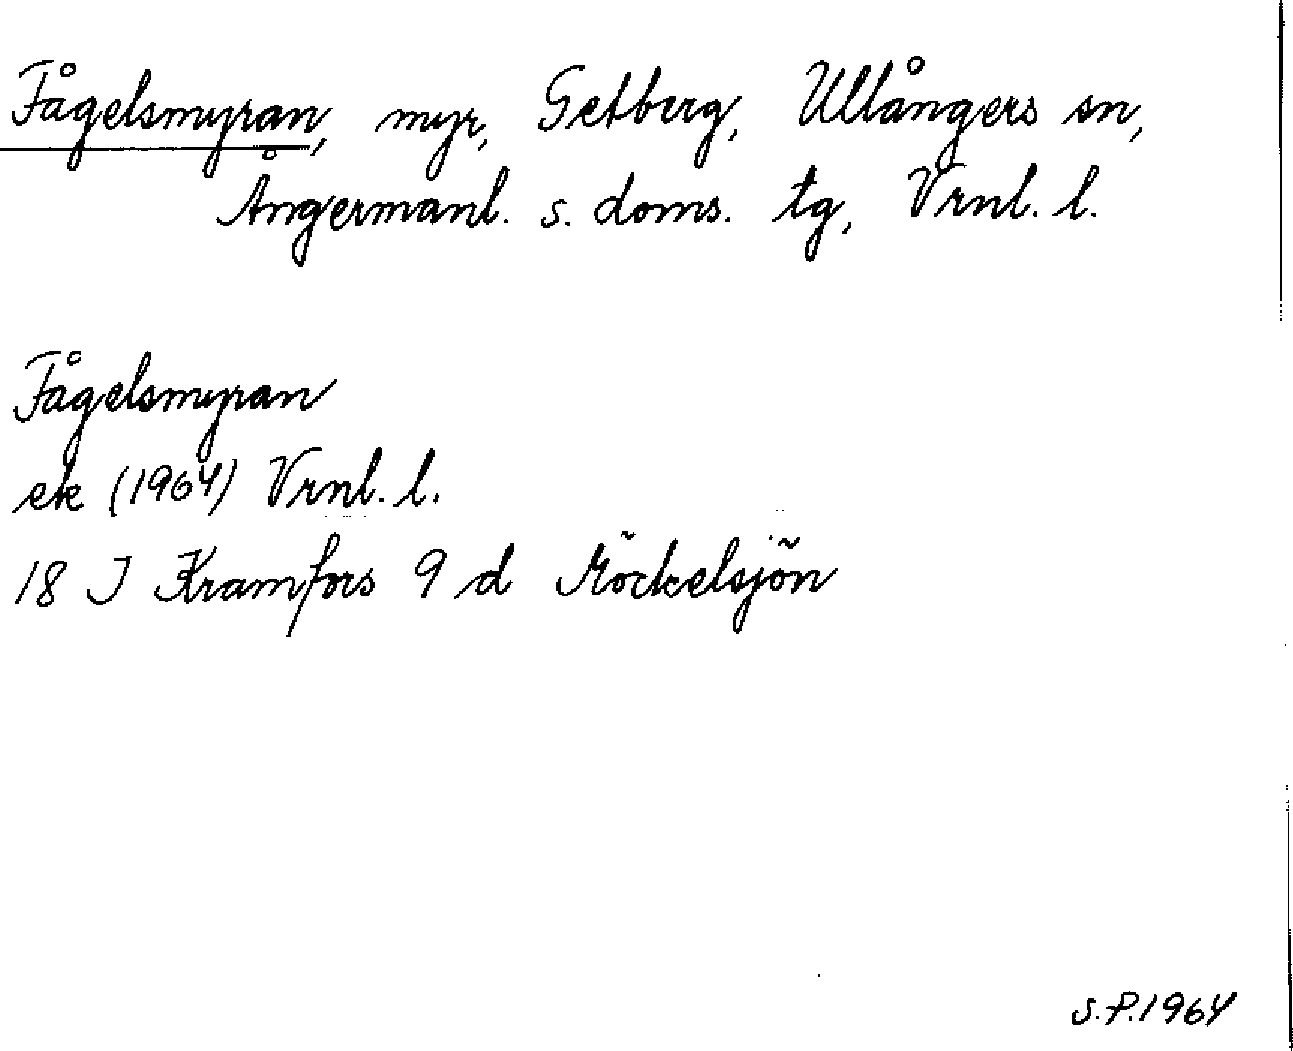 Fågelsmyran, myr, Getberg, Ullångers sn,
Ångermanl. s. doms. tg, Vrnl. l.
Fågelsmyran
ek (1964) Vrnl. l.
18 J Kramfors 9 d Möckelsjön
S.P.1964